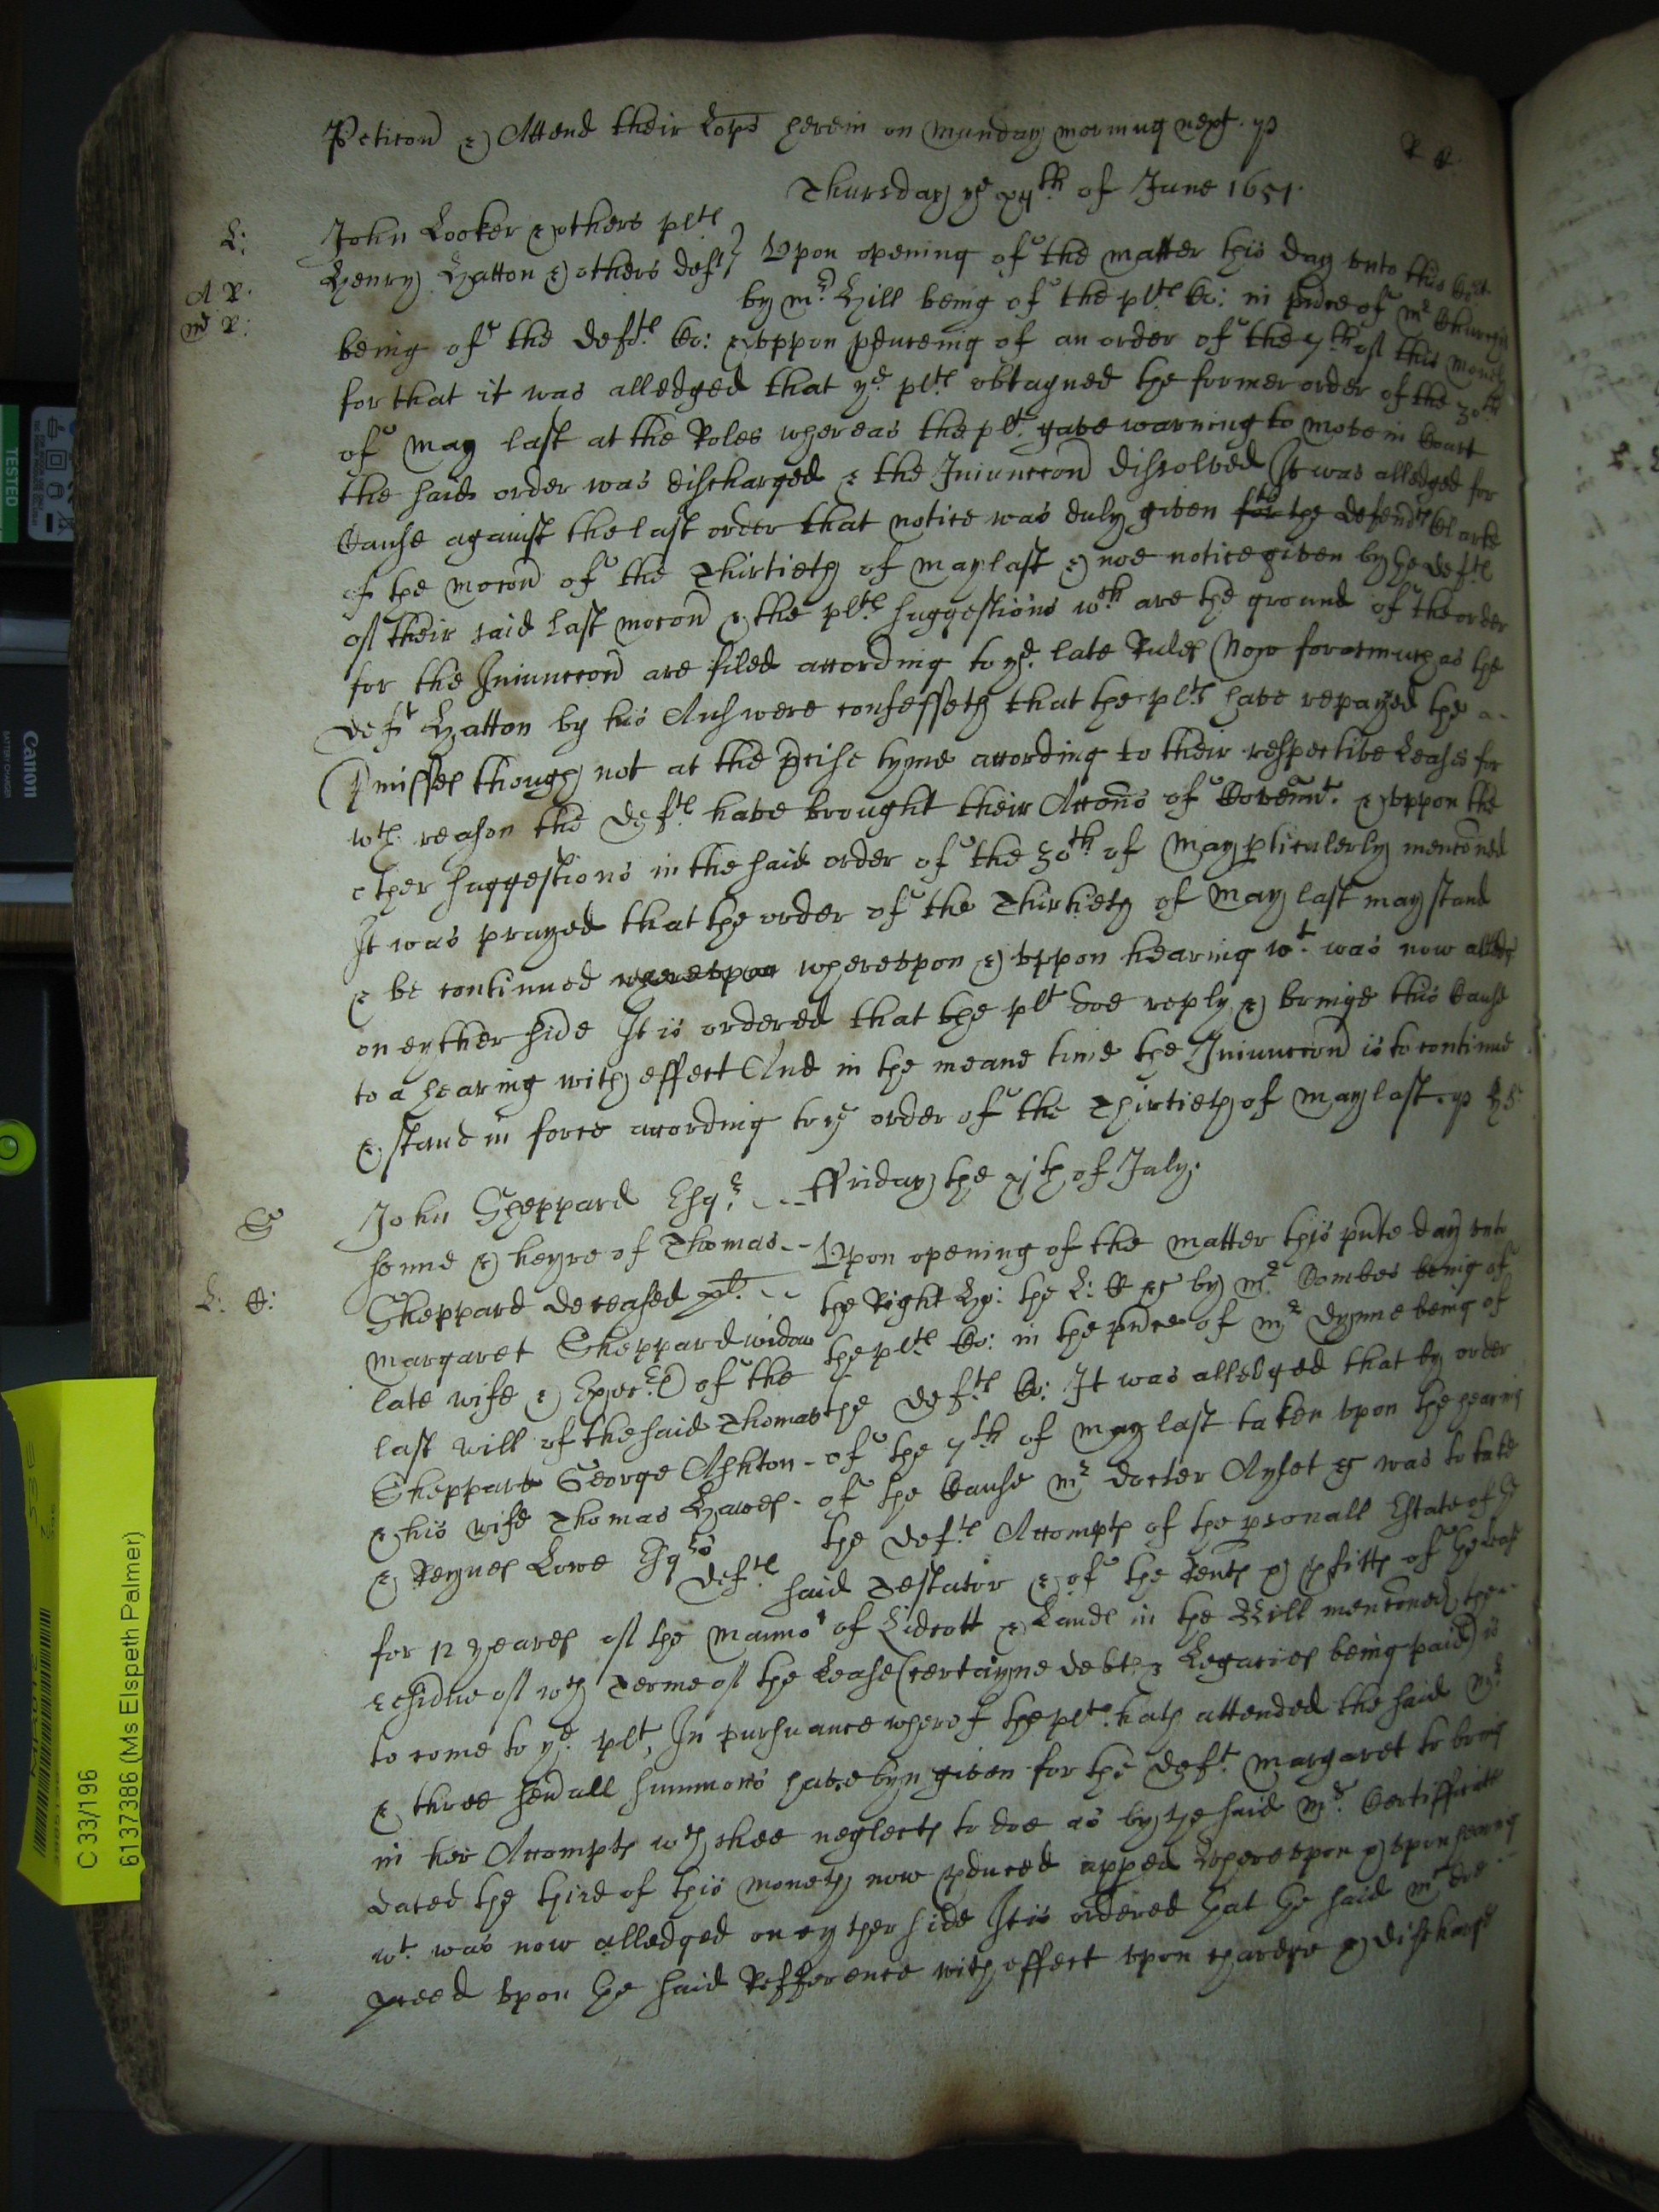 Peticon & Attend their Lops herein on Munday morning next. yp
R R.
Thursday ye xijth of June 1651.
L:
John Looker & others pltes
Henry Hatton & others deftes
A R.
Mr R:
Upon opening of the matter this day unto this Cort
by mr. Hill being of the pltes Co: in pnce of mr Churchill
being of the Deftes Co: & uppon pduceing of an order of the 7th of this moneth
for that it was alledged that ye. pltes obtayned the former order of the 30th
of May last at the Roles whereas the plt. gave warning to move in Court
the said order was discharged & the Iniunccon dissolved It was alledged for
Cause against the last order that notice was duly given for the defendtes Clarke
of the mocon of the Thirtieth of may last & noe notice given by the deftes
of their said last mocon & the pltes suggestions wch are the ground of the order
for the Iniunccon are filed according to ye. late Rules Now forasmuch as the
deft Hatton by his Answere confesseth that the pltes have repayed the
pmisses though not at the pcise tyme according to their respective Leases for
wch reason the Deftes have brought their Accons of Covennt. & uppon the
other suggestions in the said order of the 30th of May pticulerly menconed
It was prayed that the order of the Thirtieth of May last may stand
& be continued whereupon whereupon & uppon hearing wt. was now alledged
on eyther side It is ordered that the plt doe reply & bringe this Cause
to a hearing with effect And in the meane time the Iniunccon is to continue
& stand in force according to ye order of the Thirtieth of May last. yp
S
John Sheppard Esqr. - - ffriday the xjth of July.
sonne & heyre of Thomas - - Upon opening of the matter this pnte day unto
L: C:
Sheppard deceased plt. - - the Right Ho: the L: C &c by mr Combes being of
Margaret Sheppard widow the pltes Co: in the pnce of mr dynne being of
late wife & Execr of the the Deftes Co: It was alledged that by order
last will of the said Thomas of the 7th of May last taken upon the hearing
Sheppard George Ashton - of the Cause mr Docter Aylet &c was to take
& his wife Thomas Hawes - the Deftes Accompts of the psonall Estate of ye
& Reynes Lowe Esqrs Deftes said Testator & of the Rents & pfitts of the leas
for 12 yeares of the Mannor of Lidcott & Landes in the Will menconed the
residue of wch Terme of the Lease (certayne debts & Legacies being paid) is
to come to ye. plt, In pursuance whereof the plt. hath attended the said Mr
& three sevall summons have byn given for the Deft. Margaret to bring
in her Accompts wch shee neglects to doe as by the said Mr. Certifficate
dated the third of this moneth now pduced appeared Whereupon & upon hearing
wt. was now alledged on eyther side It is ordered that the said Mr doe
pceed upon the said Refference with effect upon chardge & discharge
TESTED
Canon
BATTERY CHARGER
C 33/196
6137386 (Ms Elspeth Palmer)